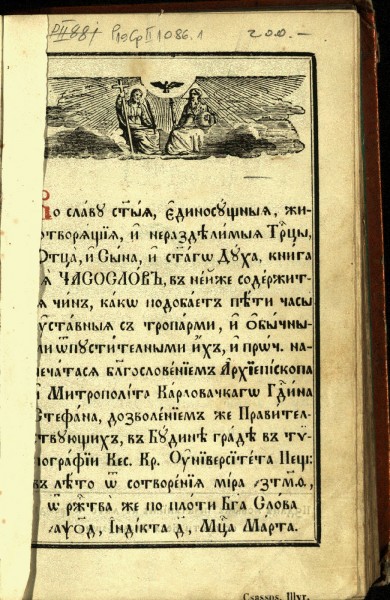 РIII 881 РлоСр II 1086.1 200.-
Во славу ст҃ы́ѧ, Є҆диносꙋ́щныѧ, жи-
отворѧ́щїѧ, и҆ нераздѣли́мыѧ Трⷪ҇цы,
Отца̀, и҆ Сы́на, и҆ ст҃а́гѡ Дꙋ́ха, кни́га
ѧ҆ ЧАСОСЛО́ВЪ, въ не́йже содержи́т
ѧ чи́нъ, ка́кѡ подоба́етъ пѣ́ти часы̀
ᲂу҆ста́вныѧ съ тропарми, и҆ Ѻ҆бы́чны
ми ѿпꙋсти́телными и҆́хъ, и҆ про́ч. на-
печа́тасѧ бл҃гослове́нїемъ А҆рхїепі́скопа
и҆ Митрополі́та Ка́рловачкагѡ Гдⷭ҇и́на
Стефа́на, дозволе́нїемъ же Прави́тел-
ствꙋющихъ, въ Бꙋ́динѣ гра́дѣ въ тѷ-
погра́фїи Кес. Кр. Оу҆нїверсїте́та Пещ:
въ лѣ́то ѿ сотворе́нїѧ мі́ра ҂зтм҃ѳ,
ѿ рж҃тва̀ же по пло́ти Бг҃а Сло́ва
҂аѱо҃д, І҆нді́кта д҃, Мц҃а Ма́рта.
Csássos. Illyr.